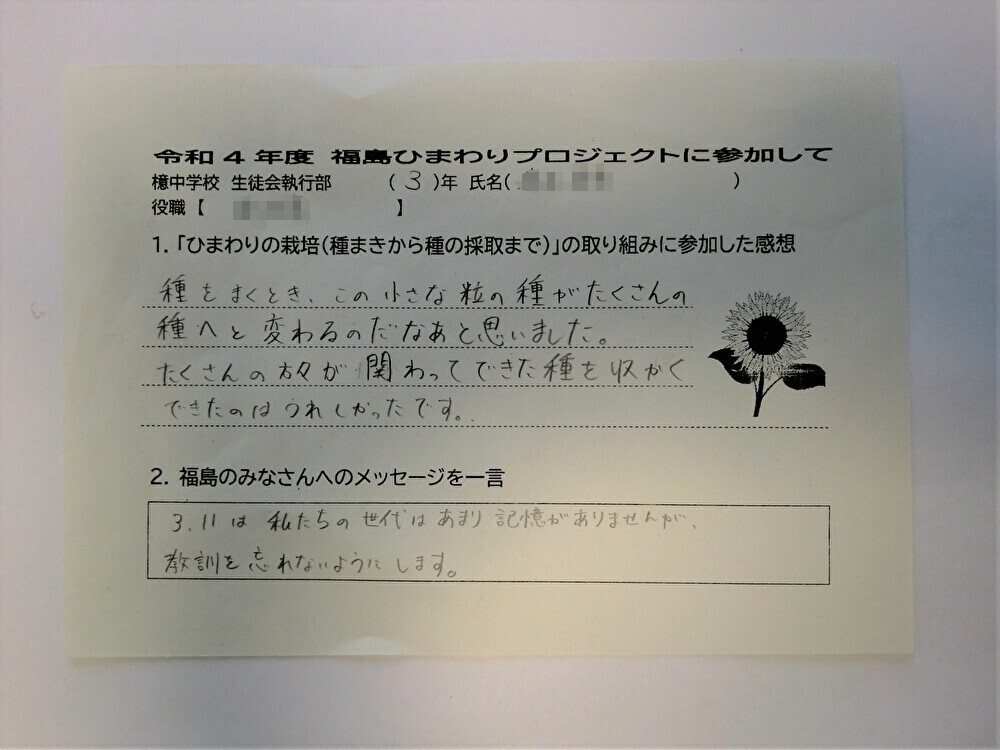 令和4年度 福島ひまわりプロジェクトに参加して
檍中学校 生徒会執行部 (3)年 氏名( )
役職【 】
1.「ひまわりの栽培(種まきから種の採取まで)」の取り組みに参加した感想
種をまくとき、この小さな粒の種がたくさんの
種へと変わるのだなあと思いました。
たくさんの方々が関わってできた種を収かく
できたのはうれしかったです。
2. 福島のみなさんへのメッセージを一言
3.11は私たちの世代はあまり記憶がありませんが、
教訓を忘れないようにします。